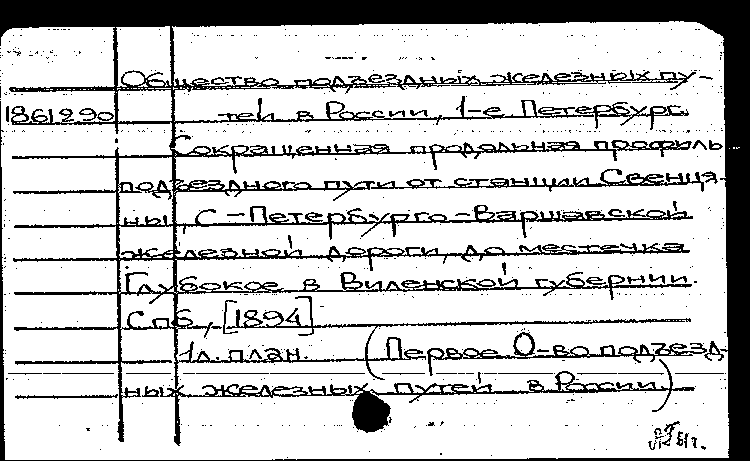 Общество подъездных железных пу-
1861290 тей в России, 1-е Петербург.
Сокращенная продольная профиль
подъездного пути от станции Свенця-
ны, С-Петербурго-Варшавской
железной дороги, до местечка
Глубокое в Виленской губернии.
Спб, [1894]
1л. план. (Первое О-во подъезд-
ных железных путей в России.)